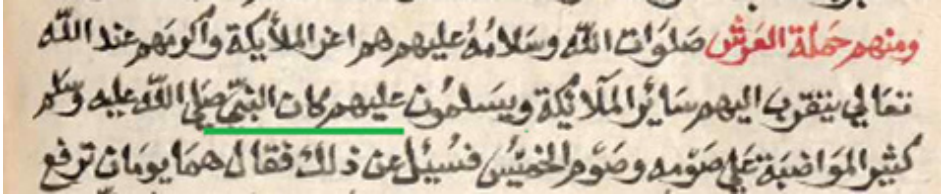 ومنهم حملة العرش صلوات الله وسلامه عليهم هم اعز الملأيكة وأكرمهم عند الله
تعالي يتقرب اليهم سائر الملأئكة ويسلمون عليهم كان النبي صلي الله عليه وسلم
كثير المواضبة علي صومه وصوم الخميس فسئيل عن ذلك فقال هما يومان ترفع